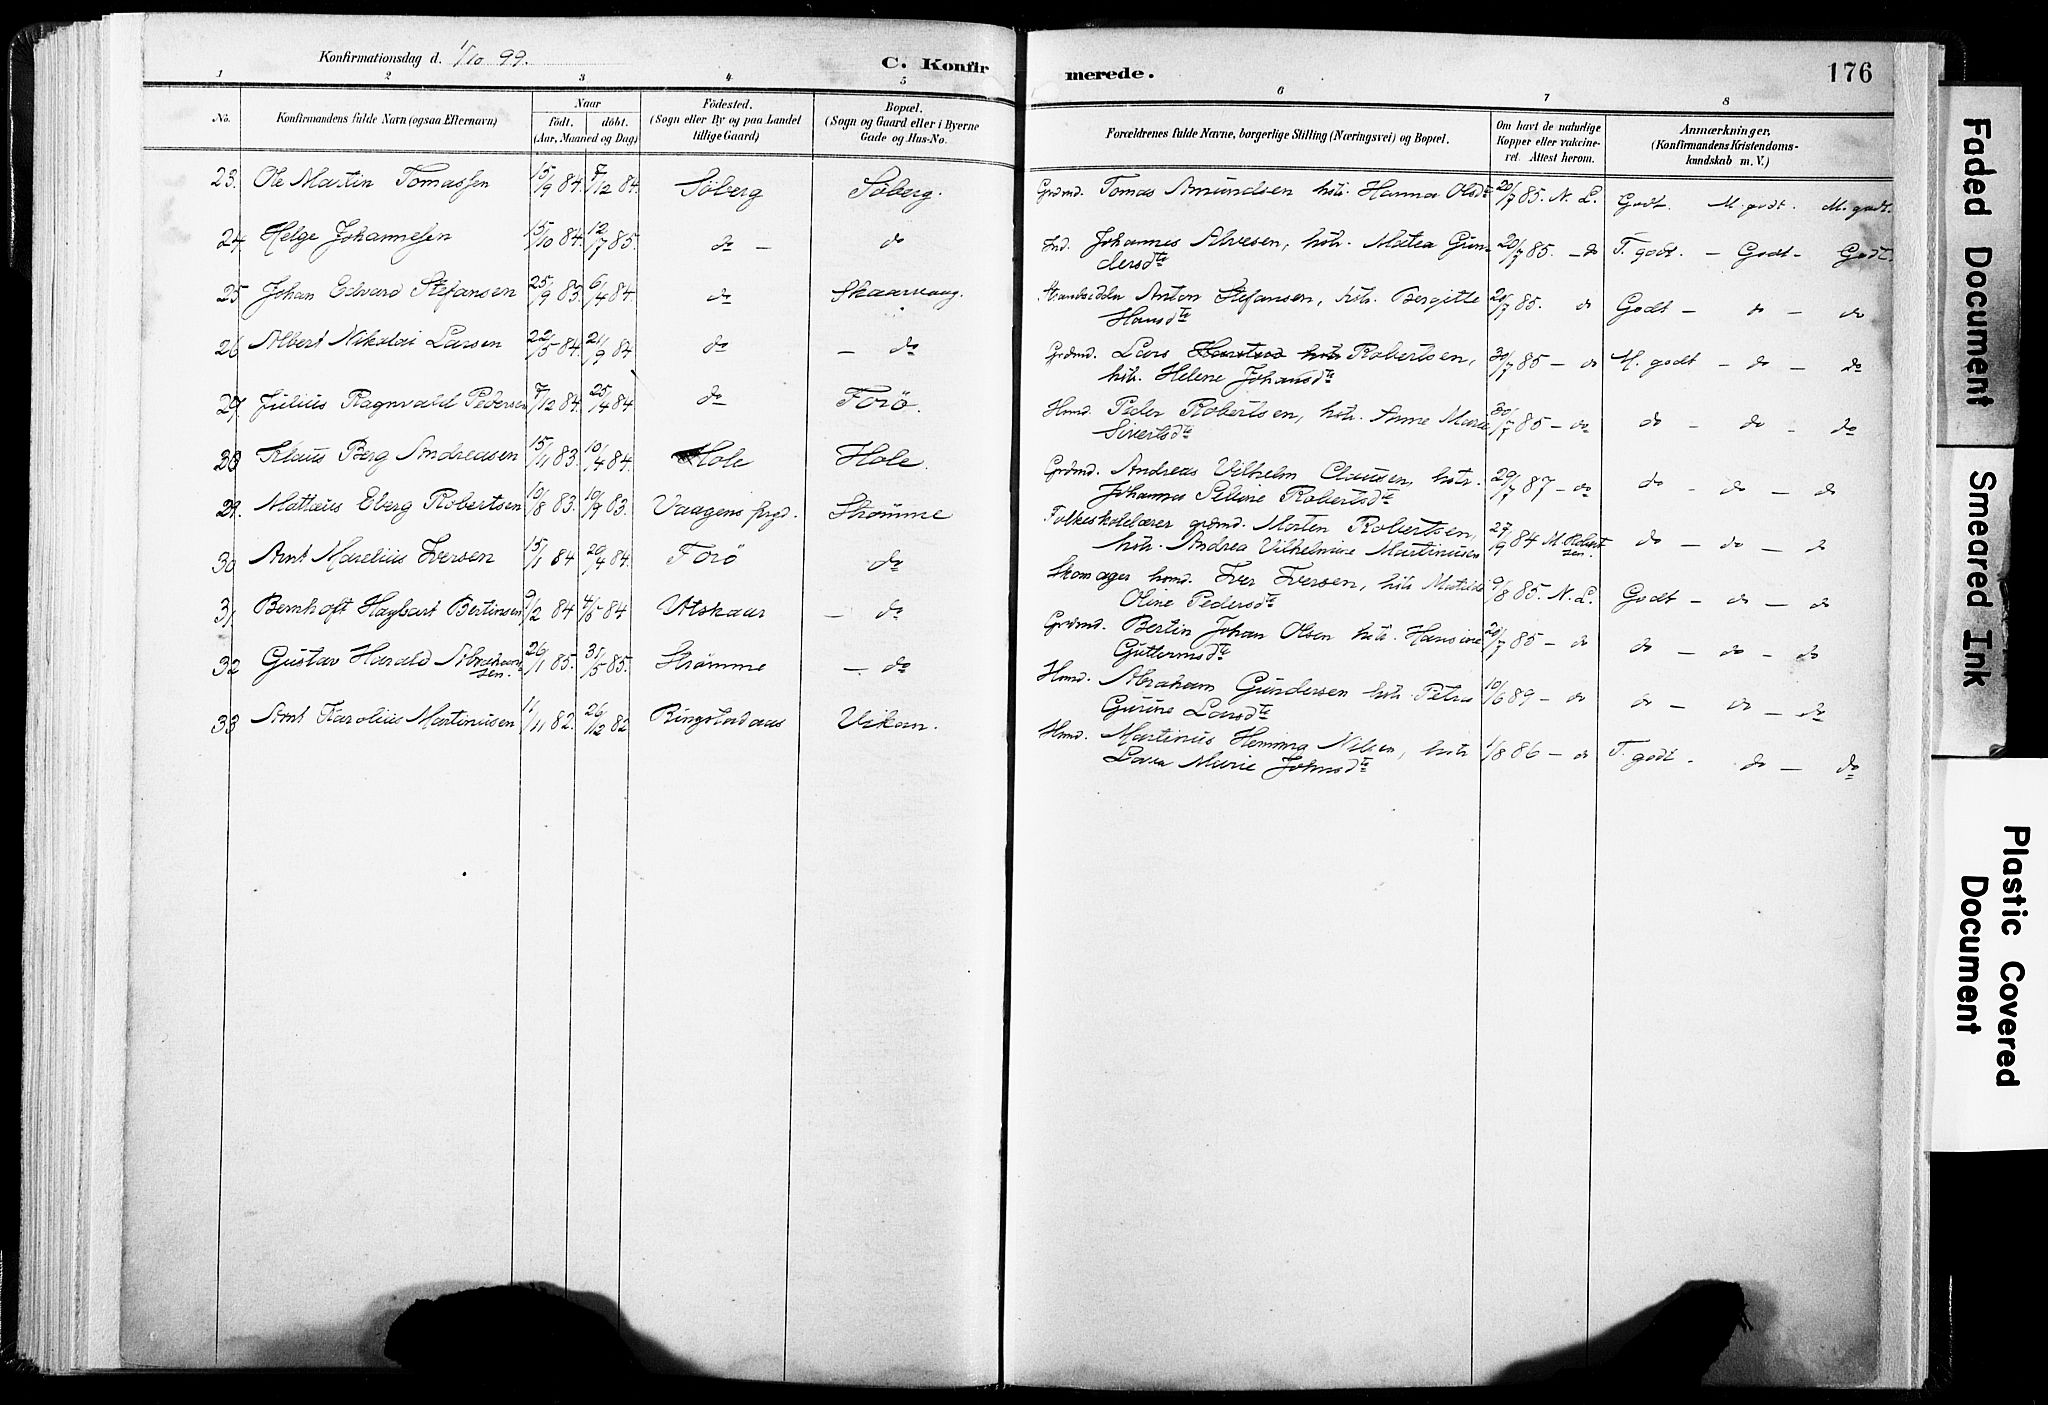 Konfirmationsdag d. 1/10 99.
C. Konfirmerede.
176
1 2 3 4 5 6 7 8
No.
Konfirmandens fulde Navn (ogsaa Efternavn)
Naar
födt. döbt.
(Aar, Maaned og Dag)
Födested.
(Sogn eller By og paa Landet
tillige Gaard)
Bopæl.
(Sogn og Gaard eller i Byerne
Gade og Hus-No.
Forældrenes fulde Navne, borgerlige Stilling (Næringsvei) og Bopæl.
Om havt de naturlige
Kopper eller vakcine-
ret. Attest herom.
Anmærkninger,
(Konfirmandens Kristendoms-
kundskab m. V.)
23. Ole Martin Tomassen 15/9 84. 7/12 84. Söberg Söberg. Grdmd. Tomas Amundsen hstr. Hanna Olsdtr 20/7 85. N. L. Godt. M. godt. M. godt.
24 Helge Johannesen 15/10 84. 12/7 85. do – do Ind. Johannes Alvesen, hstr. Matea Gun-
dersdtr 20/7 85. – do T. godt. – Godt – Godt.
25 Johan Edvard Stefansen 25/9 83. 6/4 84. do Skaarvaag. Strandsidder Anton Stefansen, hstr. Bergitte
Hansdtr 20/7 85. do Godt – do – do
26 Albert Nikolai Larsen 22/5 84. 21/9 84 do – do Grdmd. Lars Robertsen,
hstr. Helene Johansdtr 30/7 85 – do M. godt – do – do
27. Julius Ragnvald Pedersen 7/12 84. 25/4 84 do Forö. Hmd. Peder Robertsen, hstr. Anne Marie
Sivertsdtr 30/7 85 – do do – do – do
28 Klaus Berg Andreasen 15/11 83. 10/4 84. Hole Hole. Grdmd. Andreas Vilhelm Clausen, hstr.
Johanna Petrine Robertsdtr 29/7 87 – do do – do – do
29. Mathæus Eberg Robertsen 10/8 83. 10/9 83. Vaagens prgd. Strömme Folkeskolelærer grdmd. Morten Robertsen,
hstr. Andrea Vilhelmine Martinusen 27/9 84 M. Robert-
sen. do – do – do
30 Arnt Marelius Iversen 15/1 84 20/4 84. Forö do Skomager hmd. Iver Iversen, hstr Matilde
Oline Pedersdtr 9/8 85. N. L. Godt – do – do
31 Bernhoft Hagbart Bertinsen 9/2 84 4/5 84 Utskaar – do Grdmd. Bertin Johan Olsen hstr. Hansine
Guttormsdtr 20/7 85 – do do – do – do
32 Gustav Harald Abraham-
sen. 26/1 85. 31/5 85. Strömme – do Hmd. Abraham Gundersen hstr. Petra
Gurine Larsdtr 10/6 89 – do do – do – do
33 Arnt Karolius Martinusen 1/11 82. 26/12 82 Ringstadaas Vikan. Hmd. Martinus Henning Nilsen, hstr
Lava Marie Johnsdtr 1/8 86 – do T. godt. do – do
Faded Document
Smeared Ink
Plastic Covered
Document